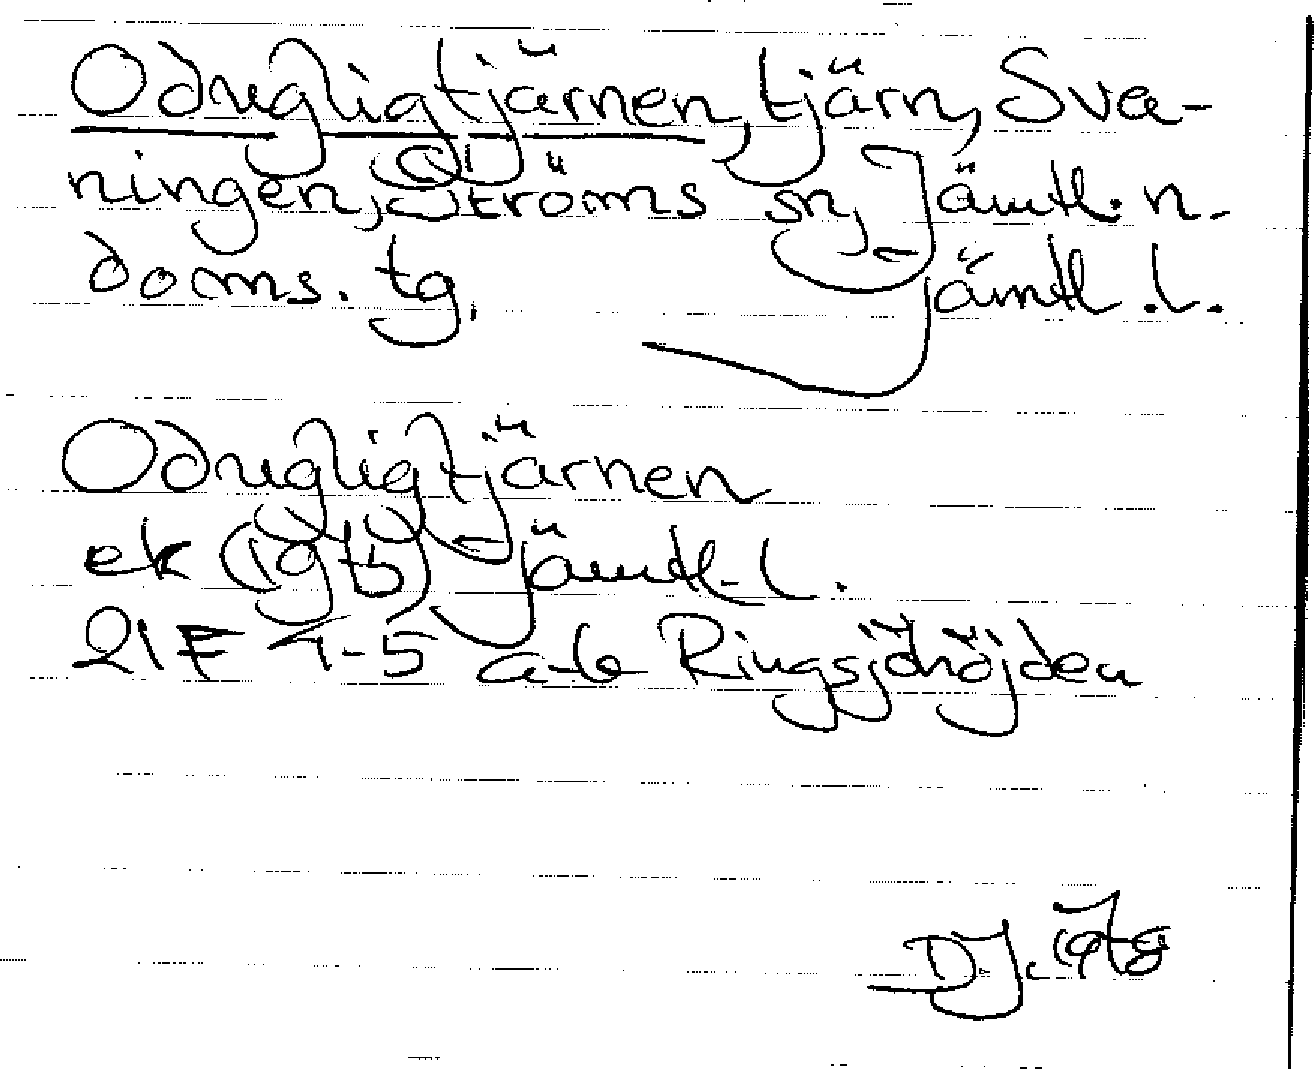 Odugligtjärnen, tjärn, Sva-
ningen, Ströms sn, Jämtl. n.
doms. tg, Jämtl. l.
Odugligtjärnen
ek Jämtl. l.
21F 4-5 a-b Ringsjöhöjden
D.J.